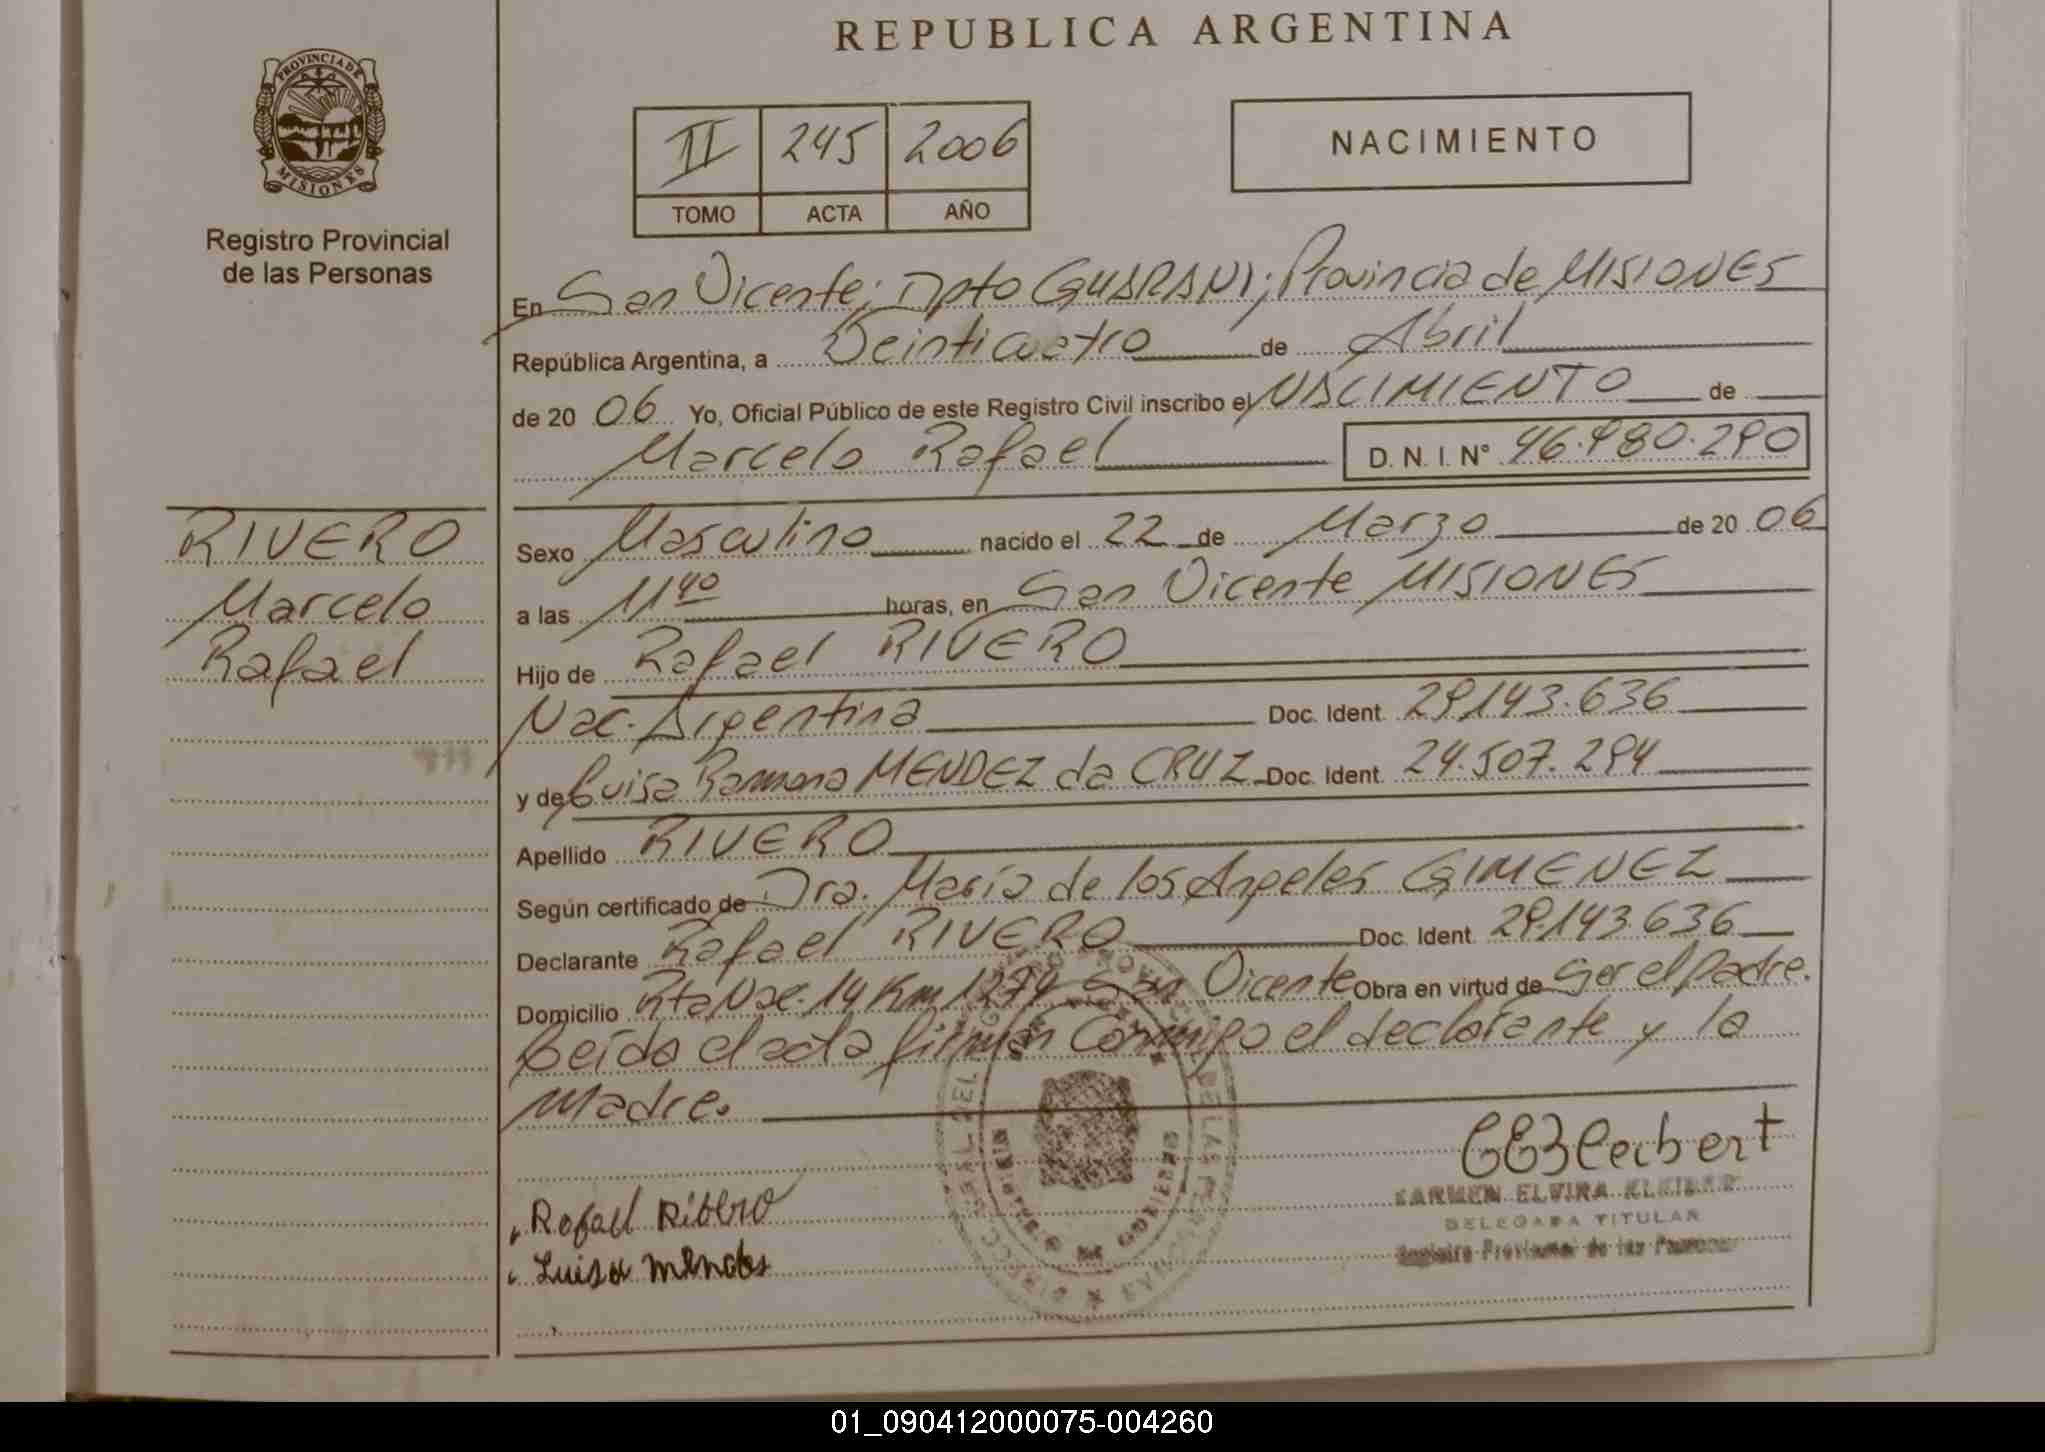 REPUBLICA ARGENTINA
PROVINCIA DE
MISIONES
Registro Provincial
de las Personas
II 245 2006
TOMO ACTA AÑO
NACIMIENTO
En San Vicente; Dpto GUARANI; Provincia de MISIONES
República Argentina, a Veinticuatro de Abril
de 20 06 Yo, Oficial Público de este Registro Civil inscribo el NACIMIENTO de
Marcelo Rafael D.N.I. Nº 46.980.290
RIVERO
Marcelo
Rafael
Sexo Masculino nacido el 22 de Marzo de 20 06
a las 11 40 horas, en San Vicente MISIONES
Hijo de Rafael RIVERO
Nac. Argentina Doc. Ident. 29.143.636
y de Luisa Ramona MENDEZ da CRUZ Doc. Ident. 24.507.294
Apellido RIVERO
Según certificado de Dra. María de los Angeles GIMENEZ
Declarante Rafael RIVERO Doc. Ident. 29.143.636
Domicilio Rta Nac. 14 Km 1274 San Vicente Obra en virtud de Ser el padre.
Leída el acta firman Conmigo el declarante y la
Madre.
Rafael Ribero
Luisa Mendes
CARMEN ELVIRA
DELEGADA TITULAR
Registro Provincial de las Personas
MINISTERIO DE GOBIERNO
01_090412000075-004260